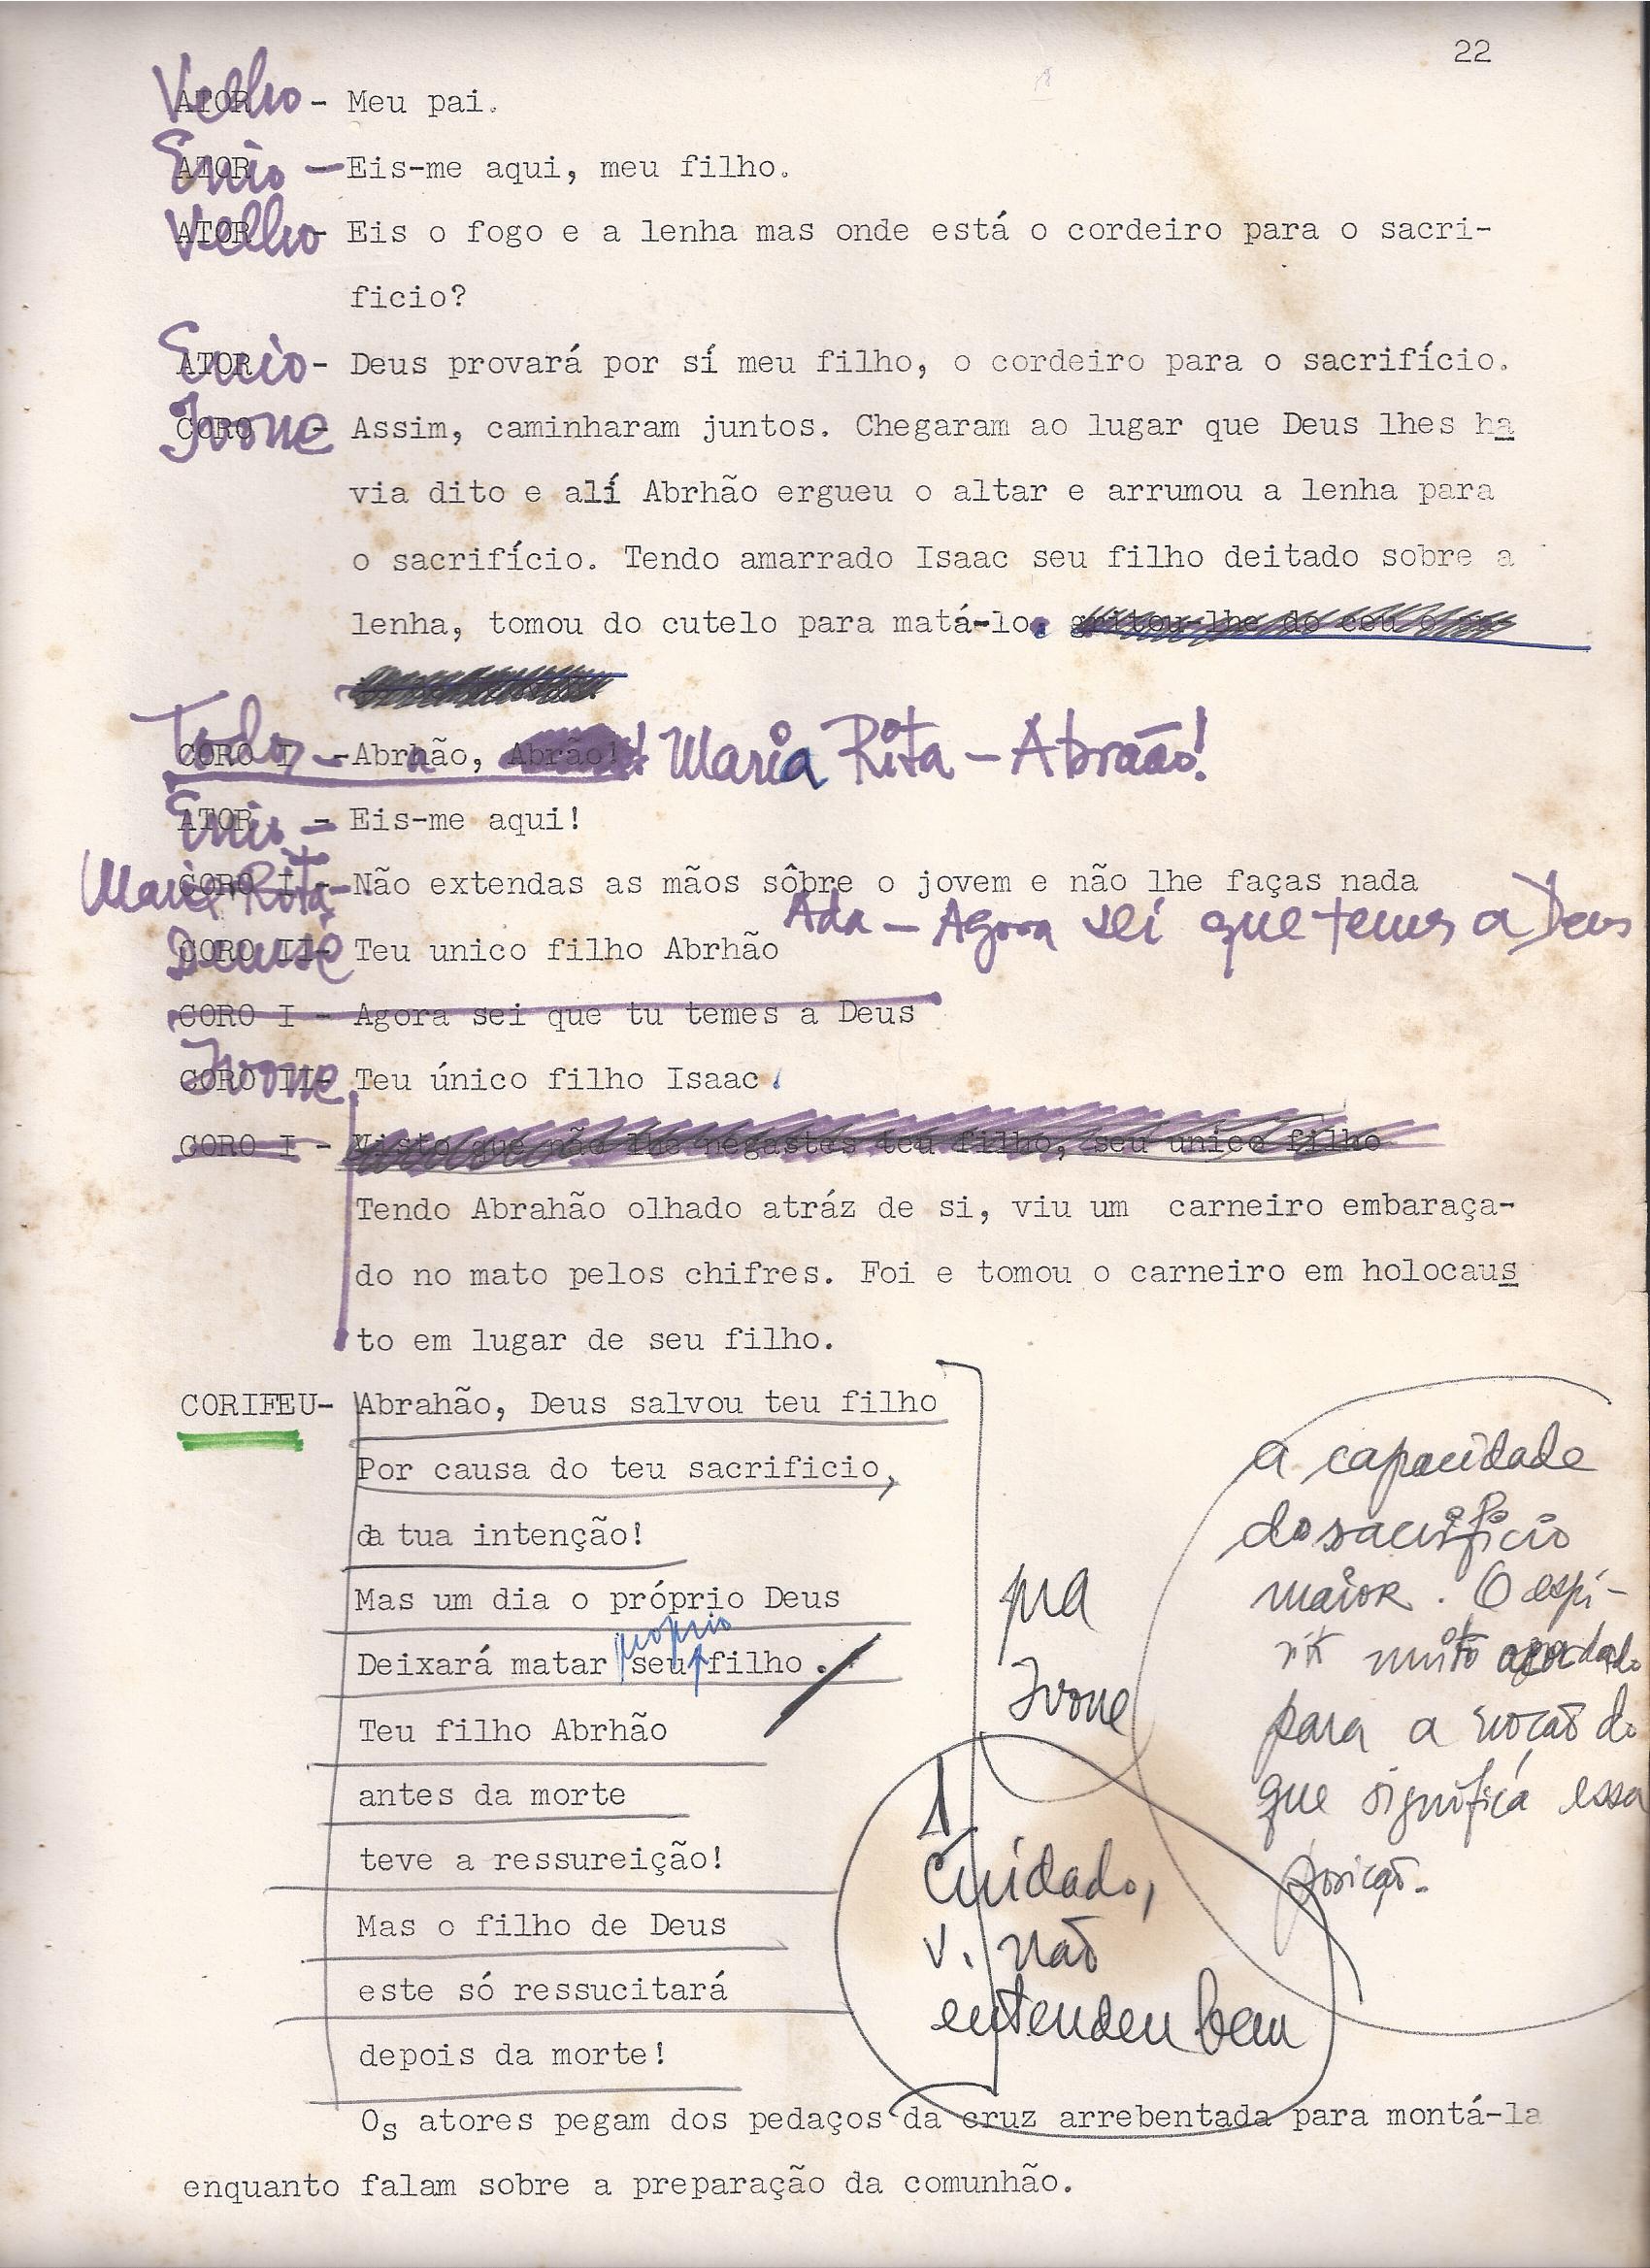 22
Velho
ATOR - Meu pai.
Enio
ATOR — Eis-me aqui, meu filho.
Velho
ATOR - Eis o fogo e a lenha mas onde está o cordeiro para o sacri-
ficio?
Enio
ATOR - Deus provará por sí meu filho, o cordeiro para o sacrifício.
Ivone
CORO - Assim, caminharam juntos. Chegaram ao lugar que Deus lhes ha
via dito e alí Abrhão ergueu o altar e arrumou a lenha para
o sacrifício. Tendo amarrado Isaac seu filho deitado sobre a
lenha, tomou do cutelo para matá-lo. gritou-lhe do ceu o
Todos
CORO I - Abrhão, Abrão! Maria Rita - Abraão!
Enio
ATOR - Eis-me aqui!
Maria Rita
CORO I - Não extendas as mãos sôbre o jovem e não lhe faças nada
Ada - Agora sei que temes a Deus
Denise
CORO II- Teu unico filho Abrhão
CORO I - Agora sei que tu temes a Deus
Ivone
CORO II- Teu único filho Isaac.
CORO I - Visto que não lhe negastes teu filho, seu unico filho
Tendo Abrahão olhado atráz de si, viu um carneiro embaraça-
do no mato pelos chifres. Foi e tomou o carneiro em holocaus
to em lugar de seu filho.
CORIFEU- Abrahão, Deus salvou teu filho
Por causa do teu sacrificio,
da tua intenção!
Mas um dia o próprio Deus
próprio
Deixará matar seu filho.
Teu filho Abrhão
antes da morte
teve a ressureição!
Mas o filho de Deus
este só ressucitará
depois da morte!
pra
Ivone
a capacidade
do sacrifício
maior. O espí-
rito muito
para a noção do
que significa essa
posição.
Cuidado,
v. não
entendeu bem
Os atores pegam dos pedaços da cruz arrebentada para montá-la
enquanto falam sobre a preparação da comunhão.